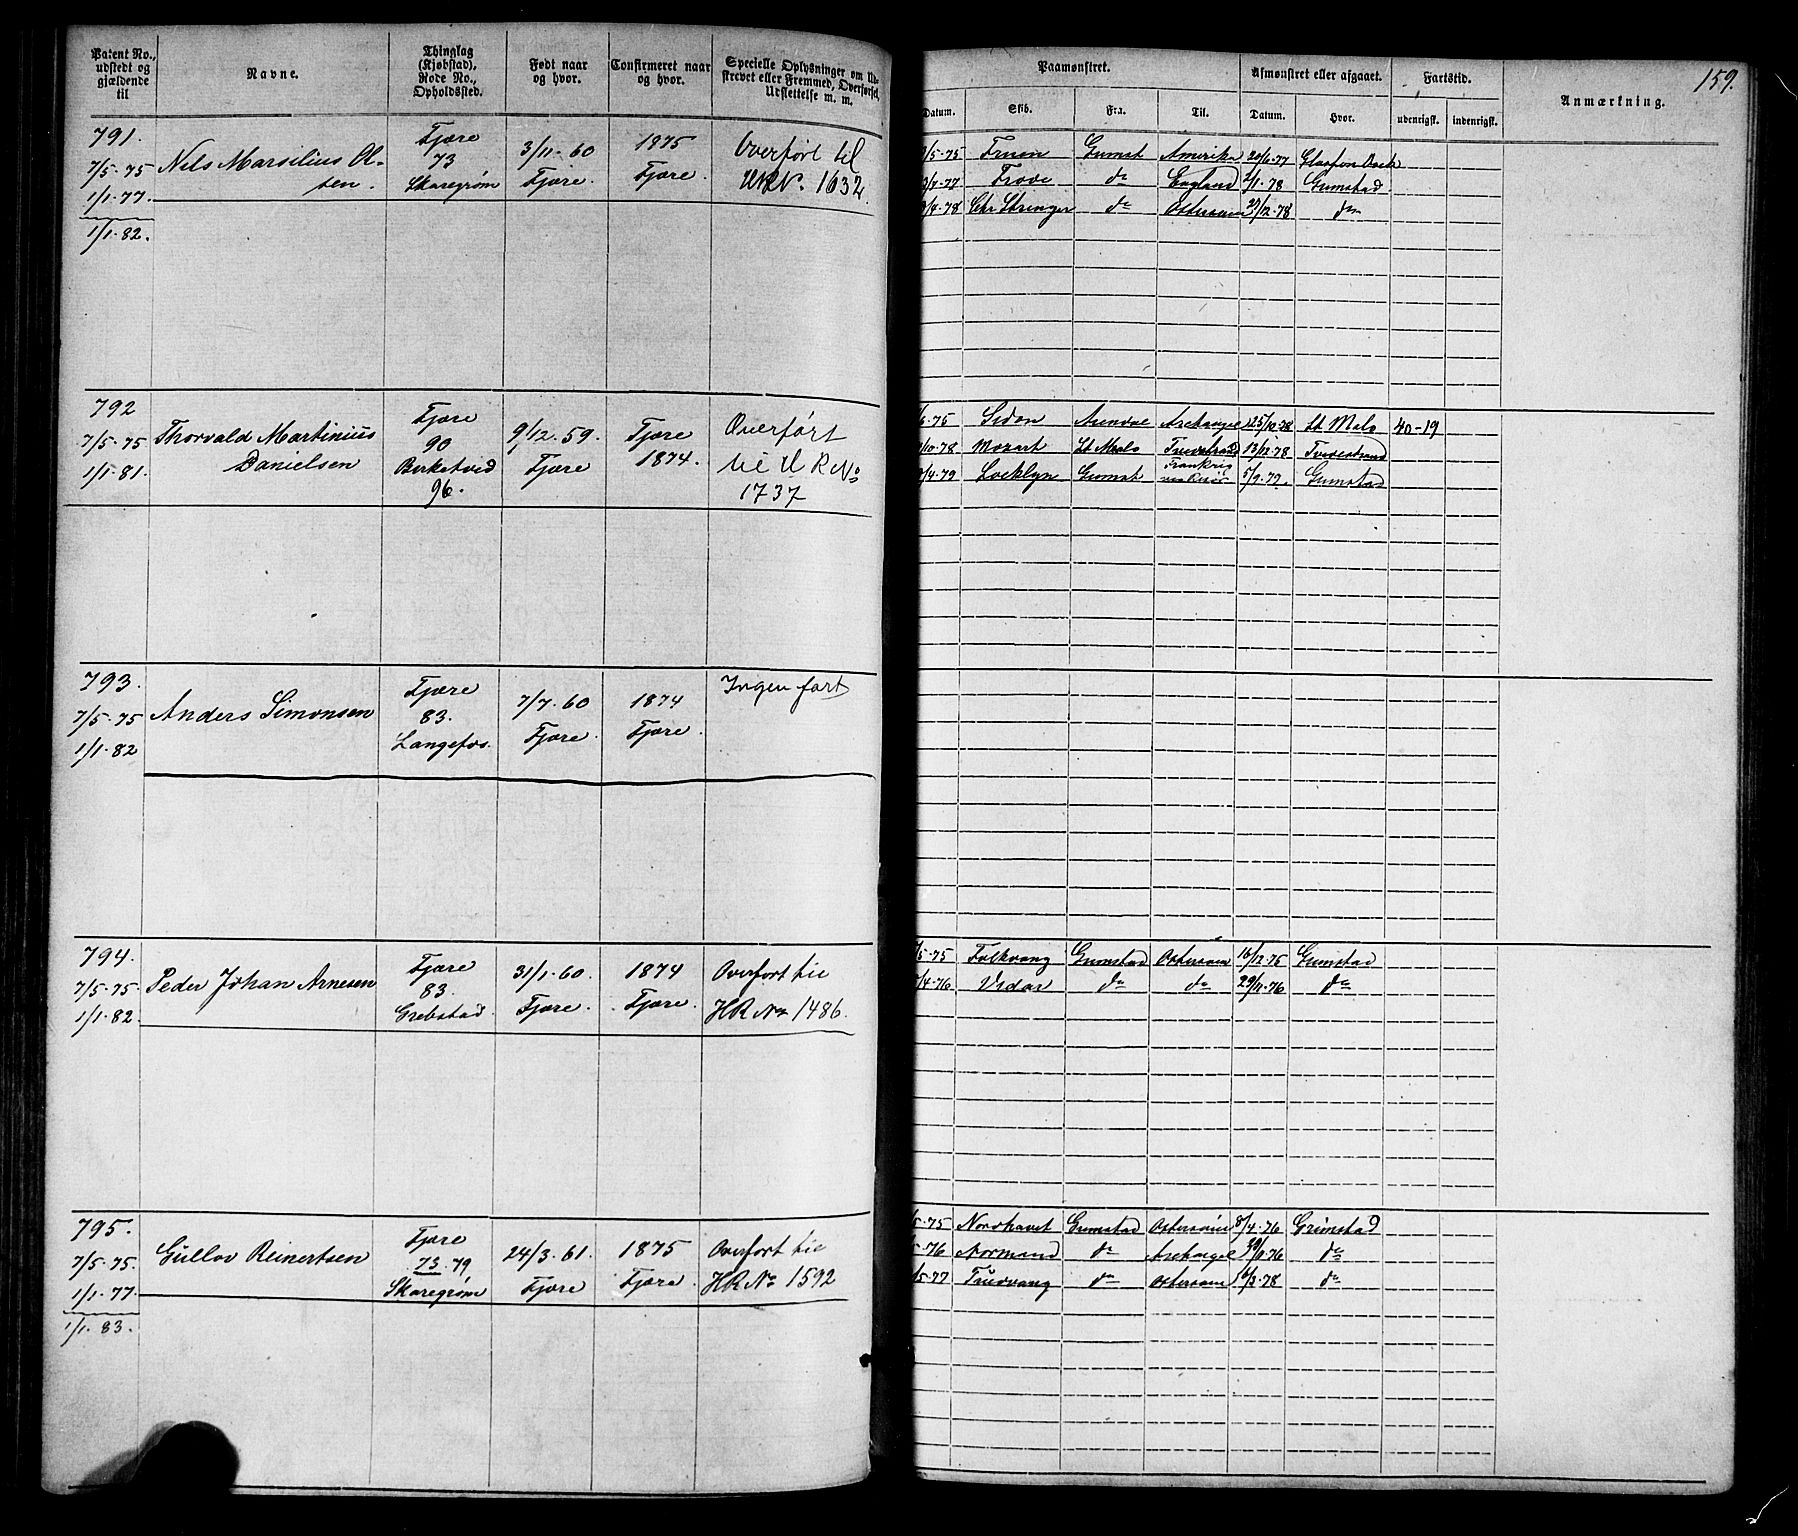 159.
Patent No., udstedt og gjældende til
Navne.
Thinglag (Kjøbstad). Rode No., Opholdssted.
Født naar og hvor.
Confirmeret naar og hvor.
Specielle Oplysninger om
Paamønstret.
Afmønstret eller afgaaet.
Fartstid.
Anmærkning.
Datum.
Skib.
Fra.
Til.
Datum.
Hvor.
udenrigsk.
indenrigsk.
791.
7/5-75
1/1-77.
1/1-82.
Nels Marselius Ol-
sen.
Fjære
73
Skaregrøm
3/11-60
Fjære.
1875
Fjære.
Overført til
1632.
5-75
Gumst
Amerika
20/6-77
7-77
do
England
2/1-78
Grimstad
4-78
Chr Strenger
do
27/12-78
do
792
7/5-75
1/1-81.
Thorvald Martinius
Danielsen
Fjære
90
Birketved
96.
9/12-59.
Fjære
Fjære
1874.
Overført
til H R No
1737
6-75
Sidon
Arendal
25/10-78
St Malo
40-19
10-78
Mozart
St Malo
13/12-78
Tvedestrand
4-79
Locklyn
Gumst
Frankrig
5/9-79.
Grimstad
793.
7/5-75
1/1-82
Anders Simonsen
Fjære
83.
Langefos.
7/7-60
Fjære.
1874
Fjære.
Ingen fart
794.
7/5-75.
1/1-82
Peder Johan Arnesen
Fjære
83.
Grebstad.
31/1-60.
Fjære.
1874
Fjære.
Overfort til
HR No 1486.
5-75
Folkvang
Grimstad
Ostersøen
16/12-75
Grimstad
4-76
Vidar
do
do
29/11-76
do
795.
7/5-75.
1/1-77.
1/1-83.
Gullov Reinertsen
Fjære
73.79
Skaregrøm
24/3-61.
Fjære
1875
Fjære.
Overfort til
HR No 1592
5-75
Nordhavet
Grimstad
Ostersøen
8/4-76
Grimstad
-76
Normand
do
Archangel
do
5-77
Trudvang
do
Ostersøen
78
do